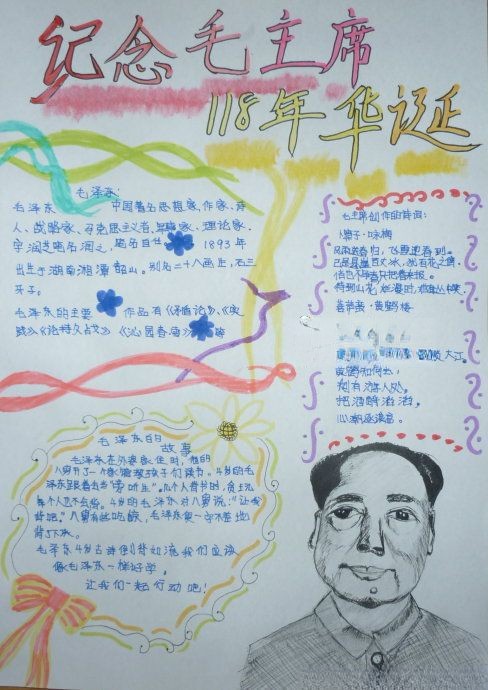 纪念毛主席
118年华诞
毛泽东:
毛泽东 中国著名思想家、作家、诗
人、战略家、马克思主义者、军事家、理论家。
字润芝笔名润之, 1893年
出生于湖南湘潭韶山。别名二十八画生,石三
牙子。
毛泽东的主要 作品有《矛盾论》、《实
践》《论持久战》《沁园春 》等
毛主席创作的诗词:
卜算子·咏梅
风雨送春归,飞雪迎春到。
已是悬崖百丈冰,犹有花枝俏。
俏也不争春只把春来报。
待到山花烂漫时,她在丛中笑
菩萨蛮·黄鹤楼
大江。
黄鹤知何去,
剩有游人处。
把酒酹滔滔。
心潮逐浪高。
毛泽东的
故事
毛泽东在外婆家住时,他的
八舅开了一个家馆教孩子们读书。4岁的毛
泽东跟着当"旁听生"。几个人背书时,
每个人 不会背。4岁的毛泽东对八舅说:"让我
背吧。"八舅有些吃惊,毛泽东竟一字不差地
背了下来。
毛泽东4岁古诗倒背如流我们应该
像毛泽东一样好学。
让我们一起行动吧!